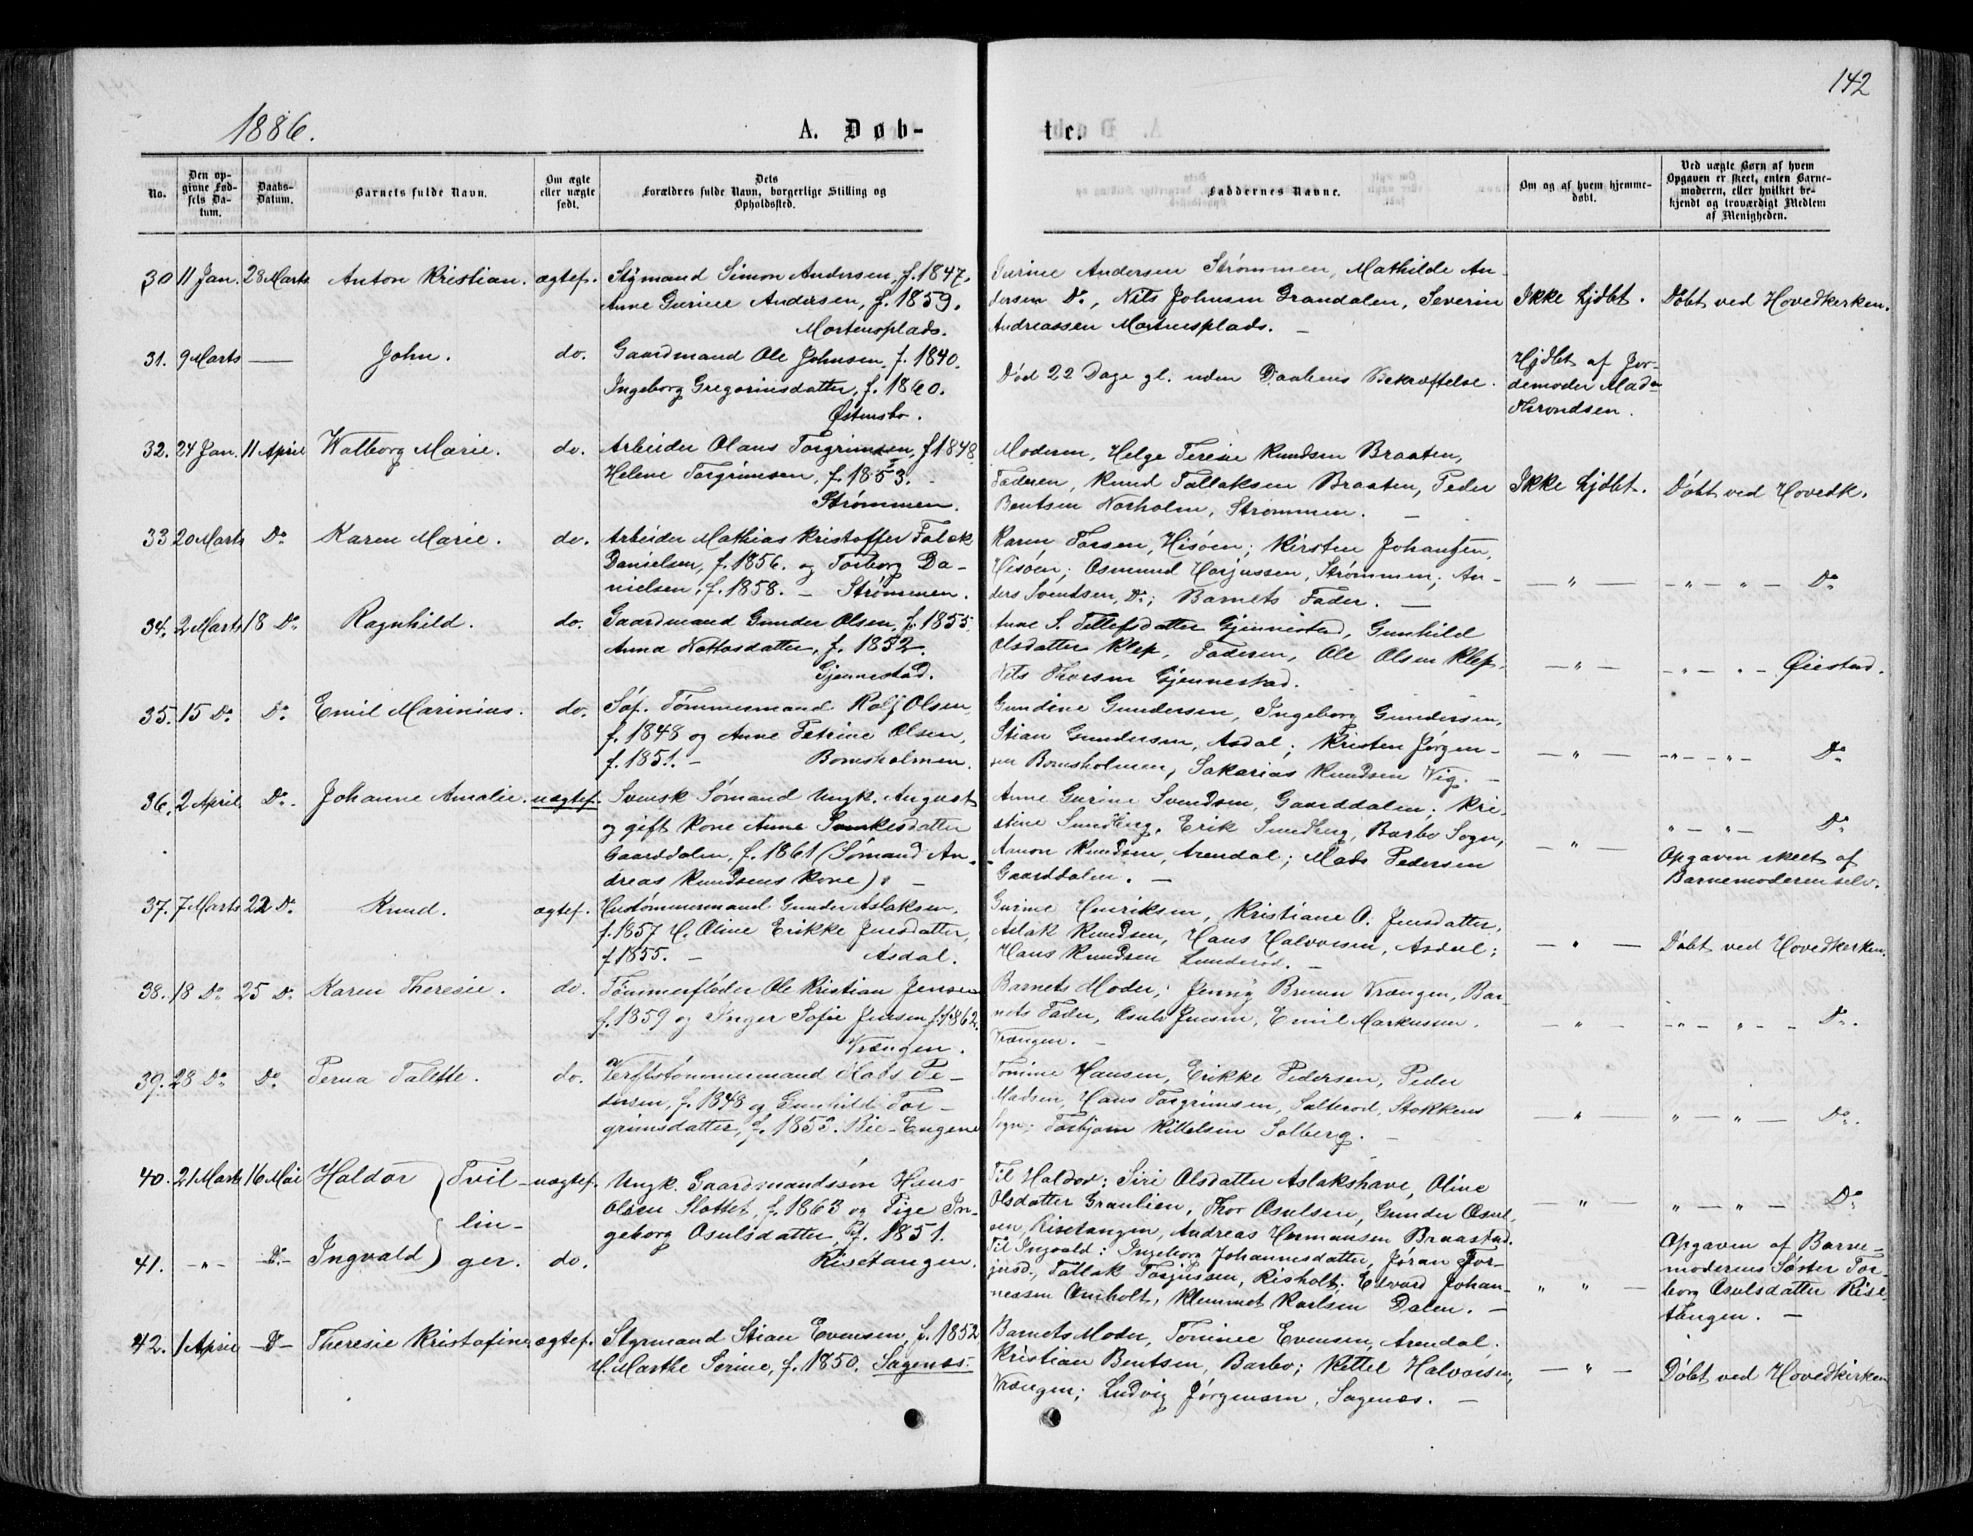 142
1886.
A. Døb-
te.
No.
Den op-
givne Fød-
sels Da-
tum.
Daabs-
Datum.
Barnets fulde Navn.
Om ægte
eller uægte
født.
Dets
Forældres fulde Navn, borgerlige Stilling og
Opholdssted.
Faddernes Navne.
Om og af hvem hjemme-
døbt.
Ved uægte Børn af hvem
Opgaven er skeet, enten Barne-
moderen, eller hvilket be-
kjendt og troværdigt Medlem
af Menigheden.
30 11 Jan. 28 Marts Anton Kristian. ægtef.
Stymand Simon Andersen, f. 1847.
Anne Gurine Andersen, f. 1859.
Mortensplads.
Gurine Andersen Strømmen, Mathilde An-
dersen Do, Nils Johnsen Grandalen, Severin
Andreassen Mortensplads. —
Ikke hjdbt.
Døbt ved Hovedkerken.
31. 9 Marts — John. do.
Gaardmand Ole Johnsen, f. 1840.
Ingeborg Gregoriusdatter, f. 1860.
Østensbo.
Død 22 Dage gl. uden Daabens Bekræftelse.
Hjdbt af Jor-
demoder Mad
Throndsen.
32. 24 Jan. 11 April Walborg Marie. do.
Arbeider Olaus Torgrimsen, f 1848.
Helene Torgrimsen, f. 1853.
Strømmen.
Moderen, Helge Teresie Knudsen Braaten,
Faderen, Knud Tallaksen Braaten, Peder
Bentsen Norholm, Strømmen. —
Ikke hjdbt.
Døbt ved Hovedk.
33 20 Marts Do Karen Marie. do.
Arbeider Mathias Kristoffer Falck
Danielsen, f. 1856. og Torborg Da-
nielsen, f. 1858. — Strømmen.
Karen Larsen, Hisøen; Kirsten Johansen,
Hisøen; Osmund Torjussen, Strømmen; An-
ders Svendsen, Do; Barnets Fader. —
— " —
— " — " — Do
34. 2 Marts 18 Do Ragnhild. do.
Gaardmand Gunder Olsen, f. 1855.
Anna Nottosdatter, f. 1852.
Gjennestad.
Anne S. Tellefsdatter Gjennestad, Gunhild
Olsdatter Klep, Faderen, Ole Olsen Klep,
Nils Thorsen Gjennestad.
— " —
— " — " — Øiestad.
35. 15 Do Do Emil Marinius. do.
Søf. Tømmermand Rolf Olsen,
f. 1848 og Anne Petrine Olsen,
f. 1851. — Bomsholmen.
Gundine Gundersen, Ingeborg Gundersen,
Stian Gundersen, Asdal; Kristen Jørgen-
sen Bomsholmen, Sakarias Knudsen Vig. —
— " —
— " — " — Do
36. 2 April. Do. Johanne Amalie. uægtef.
Svensk Sømand Ungk. August
og gift Kone Anne Sorkesdatter
Gaarddalen, f. 1861 (Sømand An-
dreas Knudsens Kone). —
Anne Gurine Svendsen, Gaarddalen; Kri-
stine Sundberg, Erik Sundberg, Barbo Sogn,
Arnon Knudsen, Arendal; Mads Pedersen
Gaarddalen. —
— " —
" — " — Do
Opgaven skeet af
Barnemoderen selv.
37. 7 Marts 22 Do. Knud. ægtef.
Hustømmermand Gunder Aslaksen,
f. 1857 H. Oline Erikke Jensdatter,
f 1855. — Asdal.
Gurine Henriksen, Kristiane O. Jensdatter,
Aslak Knudsen, Hans Halvorsen, Asdal;
Hans Knudsen Lunderød. —
— " —
Døbt ved Hovedkerken.
38. 18 Do 25 Do. Karen Theresie. do.
Tømmerfløder Ole Kristian Jensen
f. 1859 og Inger Sofie Jensen, f. 1862.
Vrængen.
Barnets Moder, Jenny Bruun Vrængen, Bar-
nets Fader, Osuls Jensen, Emil Markussen.
Vrængen. —
— " —
— " — " — Do.
39. 28 Do Do. Perna Talette. do.
Verftstømmermand Mads Pe-
dersen, f. 1848 og Gunhild Tor-
grimsdatter, f. 1853. Bie-Engene
Tomine Hansen, Erikke Pedersen, Peder
Madsen, Hans Torgrimsen, Salterød, Stokkens
Sogn; Torbjørn Kittelsen Solberg. —
— " —
" — " — Do.
40. 21 Marts 16 Mai Haldor } Tvil- uægtef.
lin-
Ungk. Gaardmandssøn Hans
Olsen Slottet, f. 1863 og Pige In-
geborg Osulsdatter, f. 1851.
Risetangen.
Til Haldor; Siri Olsdatter Aslakshave, Oline
Olsdatter Graulien, Thor Osulsen, Gunder Osul-
sen, Risetangen, Andreas Hermansen Braastad.
— " —
" — " — Do
41. — " — Do. Ingvald } ger. do.
Til Ingvald: Ingeborg Johannesdatter, Jøran Tor-
jusd., Tallak Torjussen, Risholt; Edvard Johan-
nessen Omholt, Klemmet Karlsen Dalen. —
" " —
Opgaven af Barne-
moderens Søster Tor-
borg Osulsdatter Rise-
tangen. —
42. 1 April — Do — Theresie Kristofine ægtef.
Styrmand Stian Evensen, f. 1852
H. Marthe Serine, f. 1850. Sagenæs.
Barnets Moder, Tomine Evensen, Arendal,
Kristian Bentsen, Barbo; Kittel Halvorsen,
Vrængen; Ludvig Jørgensen, Sagenæs. —
— " —
Døbt ved Hovedkirken